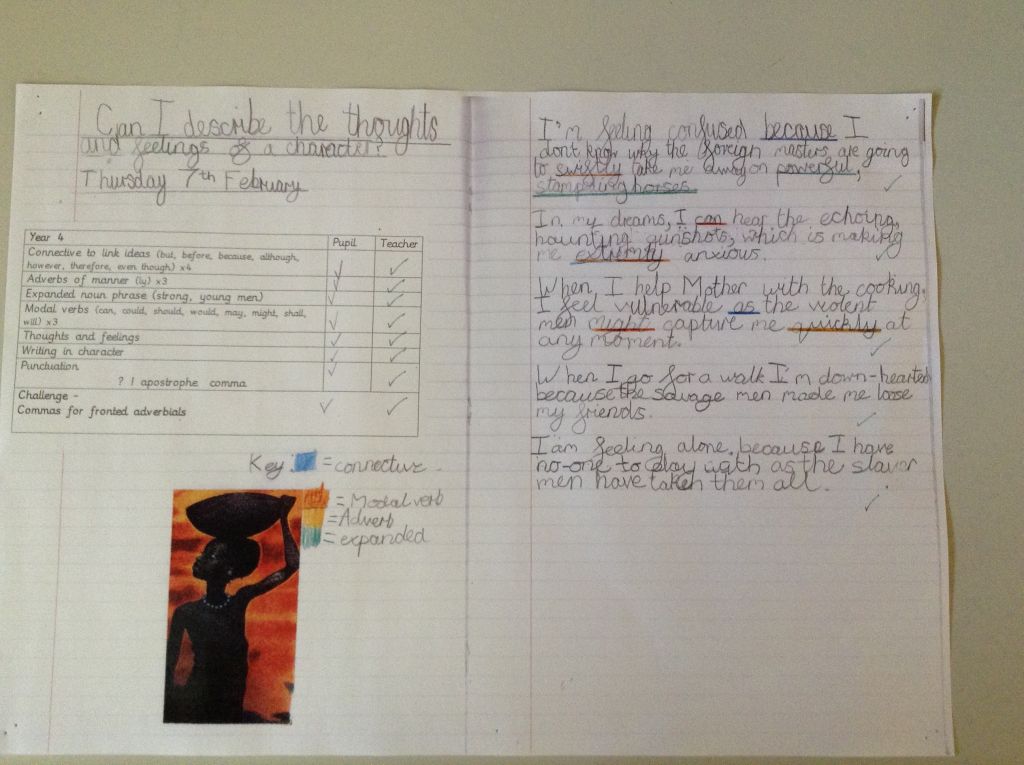 Can I describe the thoughts
and feelings of a character?
Thursday 7th February
Year 4
Pupil
Teacher
Connective to link ideas (but, before, because, although,
however, therefore, even though) x4
Adverbs of manner (ly) x3
Expanded noun phrase (strong, young men)
Modal verbs (can, could, should, would, may, might, shall,
will) x3
Thoughts and feelings
Writing in character
Punctuation
? ! apostrophe comma
Challenge -
Commas for fronted adverbials
Key: = connective
= Modal verb
= Adverb
= expanded
I'm feeling confused because I
dont know why the foreign masters are going
to swiftly take me away on powerful,
stampiing horses.
In my dreams, I can hear the echoing,
haunting gunshots, which is making
me extremty anxious.
When, I help Mother with the cooking,
I feel vulnerable as the violent
men might capture me quickly at
any moment.
When I go for a walk I'm down-hearted
because the savage men made me loose
my friends.
I am feeling alone, because I have
no-one to play with as the
men have taken them all.